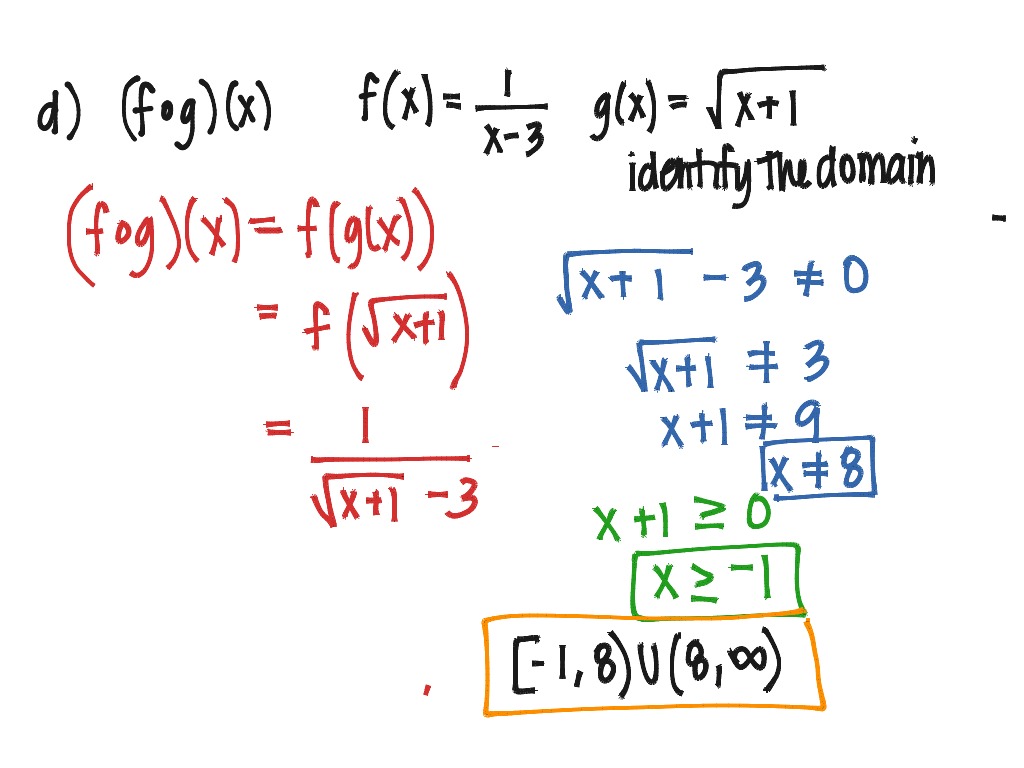 d) (fog)(x) f(x) = 1/(x-3) g(x) = √(x+1)
identify the domain
(fog)(x) = f(g(x))
= f(√(x+1))
= 1/(√(x+1) - 3)
√(x+1) - 3 ≠ 0
√(x+1) ≠ 3
x+1 ≠ 9
x ≠ 8
x+1 ≥ 0
x ≥ -1
[-1, 8) U (8, ∞)